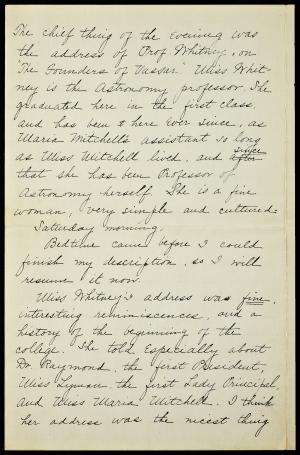 The chief thing of the Evening was
the address of Prof Whitney, on
"The Founders of Vassar." Miss Whit-
ney is the Astronomy professor. She
graduated here in the first class,
and has been here ever since, as
Maria Mitchell's assistant so long
as Miss Mitchell lived, and since
after
that she has been Professor of
Astronomy herself. She is a fine
woman, very simple and cultured.
Saturday morning.
Bedtime came before I could
finish my description, so I will
resume it now.
Miss Whitney's address was fine,
interesting reminiscences, and a
history of the beginning of the
college. She told Especially about
Dr. Raymond, the first President,
Miss Lyman, the first Lady Principal,
and Miss Maria Mitchell. I think
her address was the nicest thing